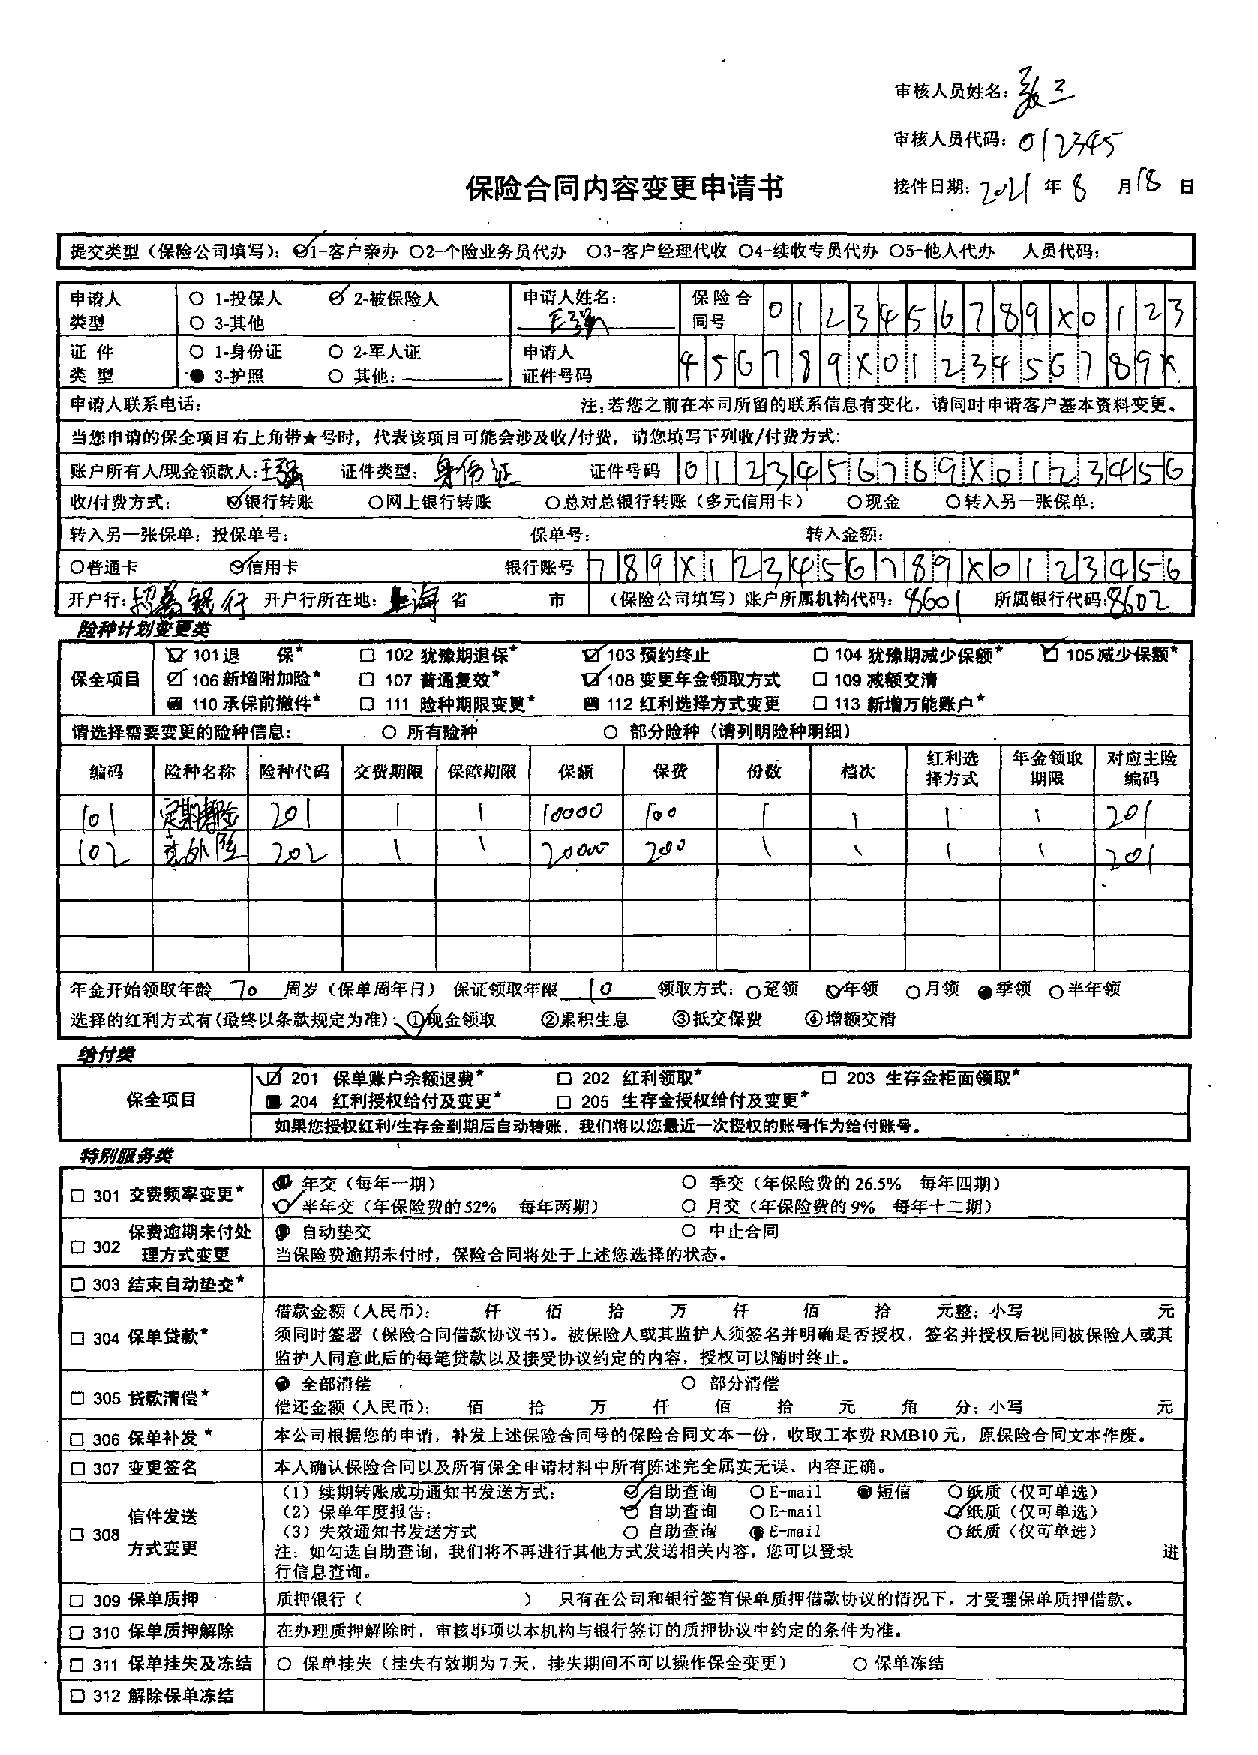 审核人员姓名：张三
审核人员代码：012345
保险合同内容变更申请书
接件日期：2021年8月18日
提交类型（保险公司填写）：1-客户亲办 ○2-个险业务员代办 ○3-客户经理代收 ○4-续收专员代办 ○5-他人代办 人员代码：
申请人类型 ○ 1-投保人 2-被保险人 ○ 3-其他 申请人姓名：王强 保险合同号 0123456789X0123
证件类型 ○ 1-身份证 ○ 2-军人证 ● 3-护照 ○ 其他： 申请人证件号码 456789X0123456789X
申请人联系电话： 注：若您之前在本司所留的联系信息有变化，请同时申请客户基本资料变更。
当您申请的保全项目右上角带★号时，代表该项目可能会涉及收/付费，请您填写下列收/付费方式：
账户所有人/现金领款人：王强 证件类型：身份证 证件号码 0123456789X0123456
收/付费方式： 银行转账 ○网上银行转账 ○总对总银行转账（多元信用卡） ○现金 ○转入另一张保单：
转入另一张保单：投保单号： 保单号： 转入金额：
○普通卡 信用卡 银行账号 789X123456789X0123456
开户行：招商银行 开户行所在地：上海 省 市 （保险公司填写）账户所属机构代码：8601 所属银行代码：8602
险种计划变更类
保全项目
☑ 101退 保* □ 102 犹豫期退保* ☑ 103 预约终止 □ 104 犹豫期减少保额* ☑ 105减少保额*
☑ 106 新增附加险* □ 107 普通复效* ☑ 108 变更年金领取方式 □ 109 减额交清
■ 110 承保前撤件* □ 111 险种期限变更* ■ 112 红利选择方式变更 □ 113 新增万能账户*
请选择需要变更的险种信息： ○ 所有险种 ○ 部分险种（请列明险种明细）
编码 险种名称 险种代码 交费期限 保障期限 保额 保费 份数 档次 红利选择方式 年金领取期限 对应主险编码
101 定期寿险 201 1 1 10000 100 1 1 1 1 201
102 意外险 202 1 1 20000 200 1 1 1 1 201
年金开始领取年龄 70 周岁（保单周年日） 保证领取年限 10 领取方式：○趸领 年领 ○月领 ●季领 ○半年领
选择的红利方式有(最终以条款规定为准)：①现金领取 ②累积生息 ③抵交保费 ④增额交清
给付类
保全项目
☑ 201 保单账户余额退费* □ 202 红利领取* □ 203 生存金柜面领取*
■ 204 红利授权给付及变更* □ 205 生存金授权给付及变更*
如果您授权红利/生存金到期后自动转账，我们将以您最近一次授权的账号作为给付账号。
特别服务类
□ 301 交费频率变更* ● 年交（每年一期） ○ 季交（年保险费的26.5% 每年四期）
半年交（年保险费的52% 每年两期） ○ 月交（年保险费的9% 每年十二期）
□ 302 保费逾期未付处理方式变更 ● 自动垫交 ○ 中止合同
当保险费逾期未付时，保险合同将处于上述您选择的状态。
□ 303 结束自动垫交*
□ 304 保单贷款* 借款金额（人民币）： 仟 佰 拾 万 仟 佰 拾 元整；小写 元
须同时签署（保险合同借款协议书）。被保险人或其监护人须签名并明确是否授权，签名并授权后视同被保险人或其
监护人同意此后的每笔贷款以及接受协议约定的内容，授权可以随时终止。
□ 305 贷款清偿* ● 全部清偿 ○ 部分清偿
偿还金额（人民币）： 佰 拾 万 仟 佰 拾 元 角 分；小写 元
□ 306 保单补发 * 本公司根据您的申请，补发上述保险合同号的保险合同文本一份，收取工本费RMB10元，原保险合同文本作废。
□ 307 变更签名 本人确认保险合同以及所有保全申请材料中所有陈述完全属实无误、内容正确。
□ 308 信件发送方式变更
（1）续期转账成功通知书发送方式： 自助查询 ○E-mail ●短信 ○纸质（仅可单选）
（2）保单年度报告： 自助查询 ○E-mail 纸质（仅可单选）
（3）失效通知书发送方式 ○ 自助查询 ●E-mail ○纸质（仅可单选）
注：如勾选自助查询，我们将不再进行其他方式发送相关内容，您可以登录 进
行信息查询。
□ 309 保单质押 质押银行（ ） 只有在公司和银行签有保单质押借款协议的情况下，才受理保单质押借款。
□ 310 保单质押解除 在办理质押解除时，审核事项以本机构与银行签订的质押协议中约定的条件为准。
□ 311 保单挂失及冻结 ○ 保单挂失（挂失有效期为7天，挂失期间不可以操作保全变更） ○ 保单冻结
□ 312 解除保单冻结